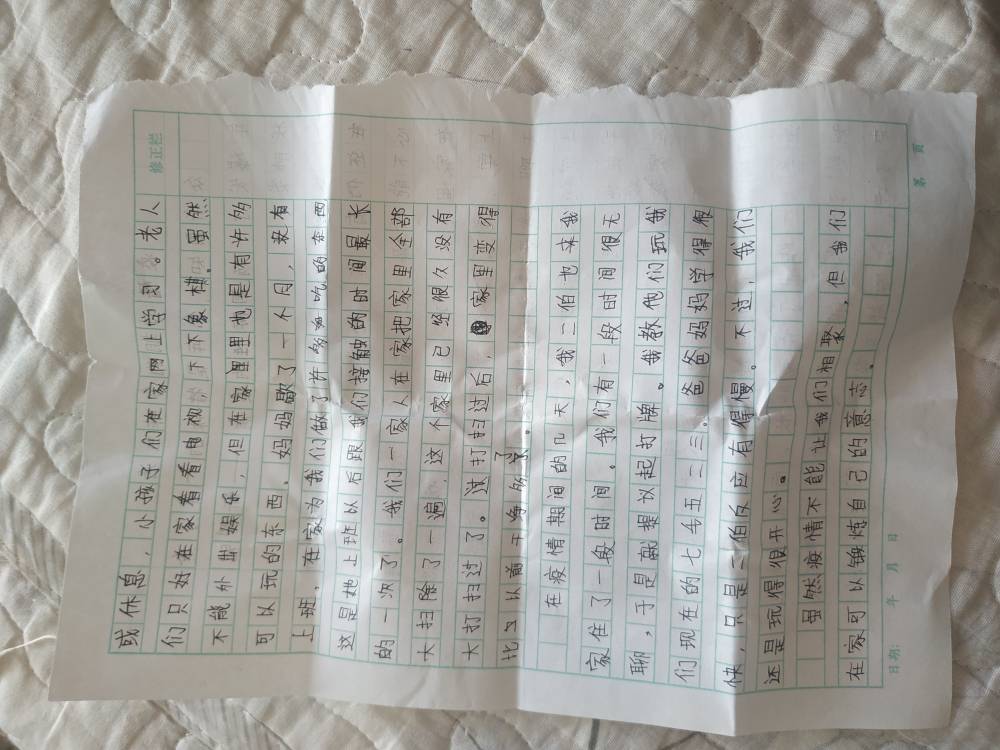 修正栏
或休息，小孩子们在家网上学习。老人
们只好在家看看电视，下下象棋。虽然
不能外出娱乐，但在家里也是有许多
可以玩的东西。妈妈歇了一个月，没有
上班，在家为我们做了许多好吃的东西
这是她上班以后跟我们接触的时间最长
的一次了。我们一家人在家把家里全部
大扫除了一遍，这个家里已经很久没有
大打扫过了。被打扫过后，家里变得
比以前干净所了。
在疫情期间的几天，我二伯也来我
家住了一段时间。我们有一段时间很无
聊，于是就提议起打牌。我教他们玩我
们现在的七千五二三。爸爸妈妈学得很
快，只是二伯反应有得慢。不过，我们
还是玩得很开心。
虽然疫情不能让我们相聚，但我们
在家可以锻炼自己的意志。
日期： 年 月 日
第 页